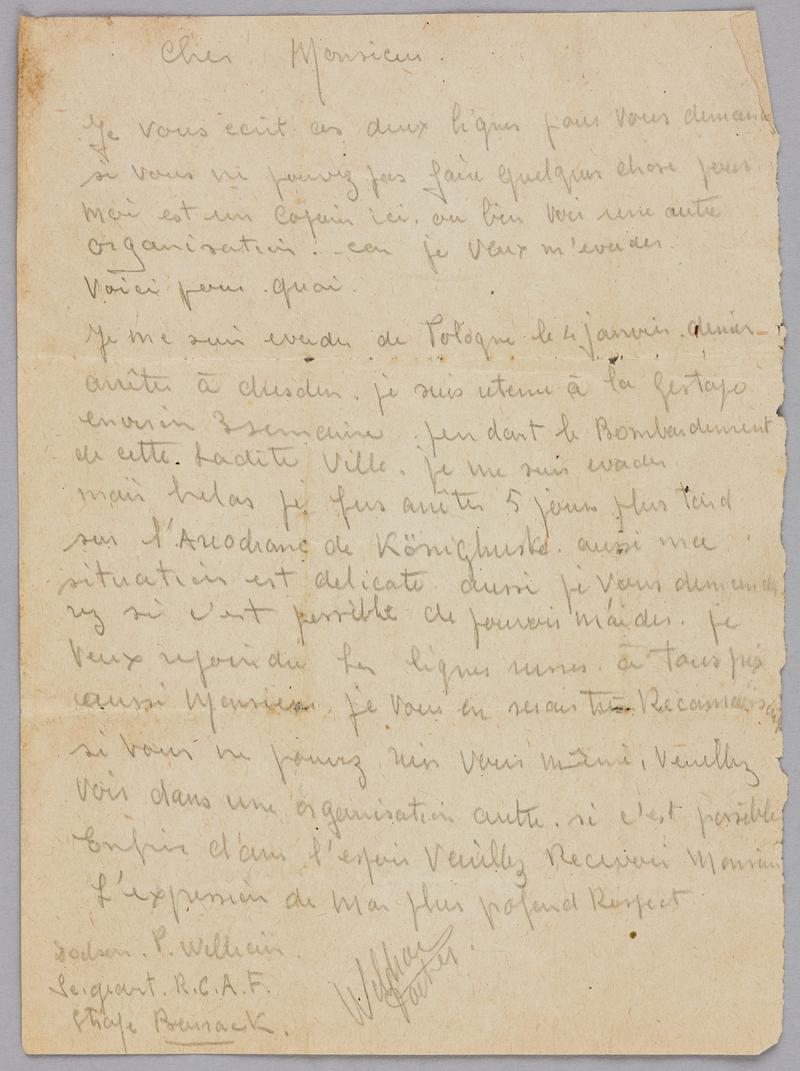 Cher Monsieur.
Je vous ecrit ces deux lignes pour vous demande
si vous ne pouvez pas faire quelques chose pour
moi est un copain ici. ou bien voir une autre
organisation. car je veux m'evader.
Voici pour quoi.
Je me suis evader de Pologne le 4 janvier. denier
arrêter à dresden. je suis retenu à la Gestapo
environ 3 semaine. pendant le Bombardement
de cette. Ladite Ville. je me suis evader
mais helas je fus arrêter 5 jours plus tard
sur l' de aussi ma
situation est delicate aussi je vous deman
rez si c'est possible de pouvoir m'aider. je
veux rejoindre Les lignes russes. à tous prix
aussi Monsieur. je vous en serais très
si vous ne pouvez rien vous même, Veuillez
voir dans une organisation autre. si c'est possible
Enfin d'ans l'espoir Veuillez Recevoir Monsieur
L'expression de mon plus profond Respect
Dodson. P. William.
Sergeant. R.C.A.F.